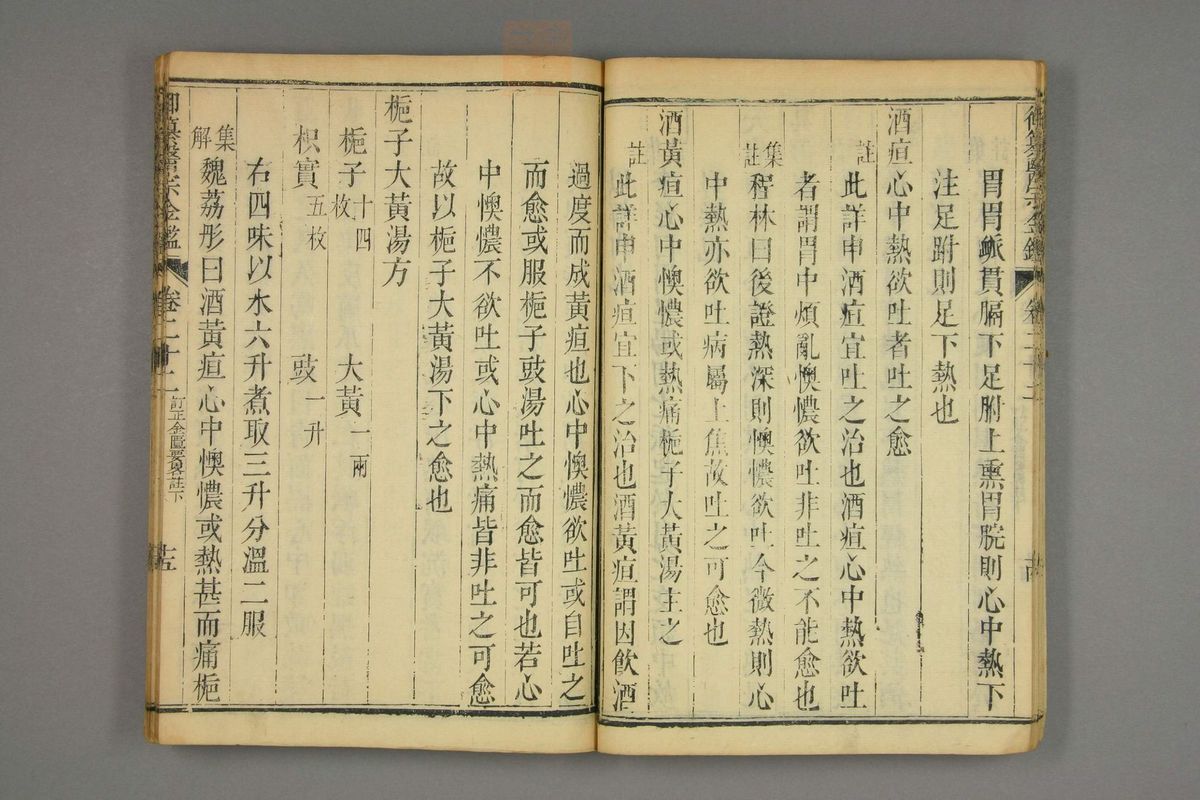 胃胃衇貫膈下足胕上熏胃脘則心中熱下
注足跗則足下熱也
酒疸心中熱欲吐者吐之愈
註
此詳申酒疸宜吐之治也酒疸心中熱欲吐
者謂胃中煩亂懊憹欲吐非吐之不能愈也
集註
程林曰後證熱深則懊憹欲吐今微熱則心
中熱亦欲吐病屬上焦故吐之可愈也
酒黃疸心中懊憹或熱痛梔子大黃湯主之
註
此詳申酒疸宜下之治也酒黃疸謂因飲酒
過度而成黃疸也心中懊憹欲吐或自吐之
而愈或服梔子豉湯吐之而愈皆可也若心
中懊憹不欲吐或心中熱痛皆非吐之可愈
故以梔子大黃湯下之愈也
梔子大黃湯方
梔子十四枚 大黃一兩
枳實五枚 豉一升
右四味以水六升煮取三升分溫二服
集解
魏荔彤曰酒黃疸心中懊憹或熱甚而痛梔
御纂醫宗金鑑 卷二十二 訂正金匱要畧註下